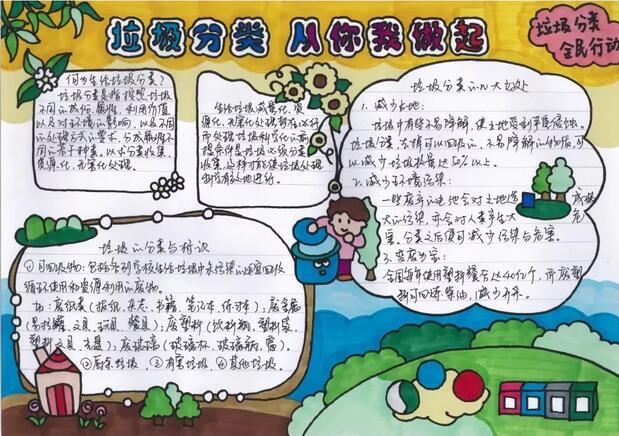 垃圾分类 从你我做起
垃圾分类
全民行动
何为生活垃圾分类?
垃圾分类是指按照垃圾
不同的成份、属性、利用价值
以及对环境的影响,以及不同
的处理方式的要求,分成属性不
同的若干种类。以求分类收集、
资源化、无害化处理。
生活垃圾减量化、资
源化、无害化处理势在必行
而处理垃圾科学化的前
提条件是垃圾必须分类
收集,这样可能使垃圾处理
垃圾分类的几大好处
1、减少占地:
垃圾中有些不易降解,使土地受到严重侵蚀。
垃圾分类,去掉可以回收的、不易降解的物质,可
以减少垃圾数量达50%以上。
2、减少环境污染:
一些废弃的电池会对土地造成极
大的污染,亦会对人类产生大危
害,分类之后便可减少污染与危害。
3、变废为宝:
全国每年使用塑料餐盒达40亿个,而废塑
料可回炼柴油,减少开采。
垃圾的分类与标识
①可回收物:
循环使用和资源利用的废物。
如:废纸类(报纸、杂志、书籍、笔记本、作业本);废金属
(易拉罐、文具、玩具、餐具);废塑料(饮料瓶、塑料袋、
塑料文具、光盘);废玻璃(玻璃杯、玻璃瓶、窗)。
②厨余垃圾,③有害垃圾 ④其他垃圾。